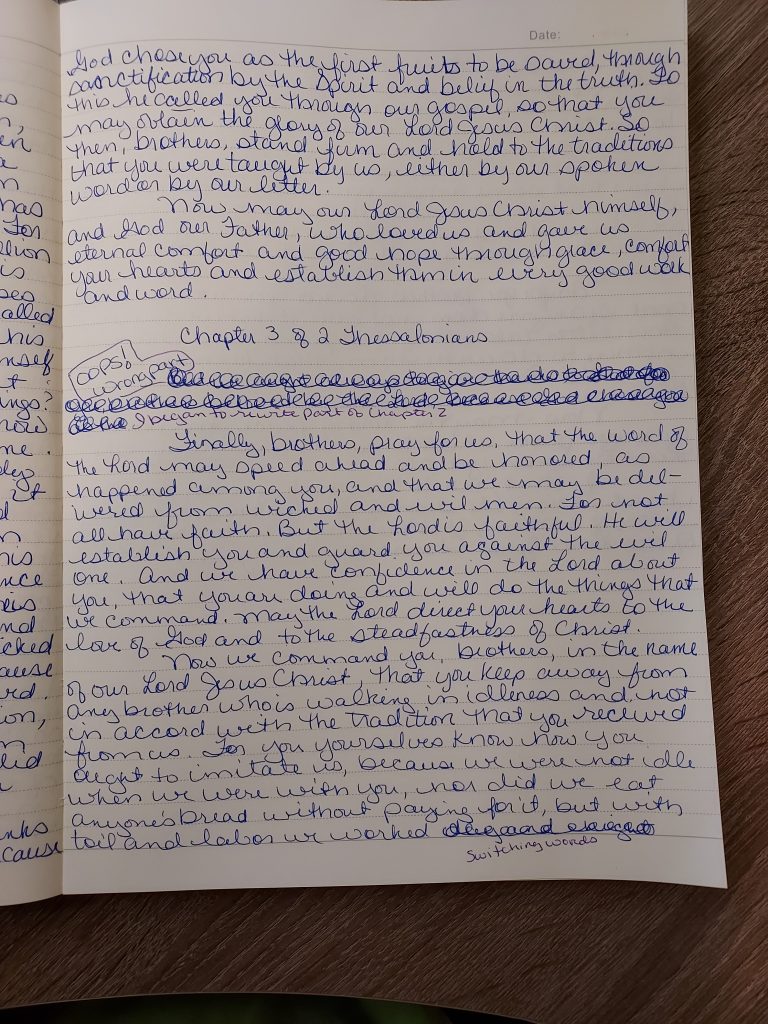 Date:
God chose you as the first fruits to be saved, through
sanctification by the Spirit and belief in the truth. To
this he called you through our gospel, so that you
may obtain the glory of our Lord Jesus Christ. So
then, brothers, stand firm and hold to the traditions
that you were taught by us, either by our spoken
word or by our letter.
Now may our Lord Jesus Christ himself,
and God our Father, who loved us and gave us
eternal comfort and good hope through grace, comfort
your hearts and establish them in every good work
and word.
Chapter 3 of 2 Thessalonians
OOPS!
wrong part
I began to rewrite part of Chapter 2
Finally, brothers, pray for us, that the word of
the Lord may speed ahead and be honored, as
happened among you, and that we may be del-
ivered from wicked and evil men. For not
all have faith. But the Lord is faithful. He will
establish you and guard you against the evil
one. And we have confidence in the Lord about
you, that you are doing and will do the things that
we command. May the Lord direct your hearts to the
love of God and to the steadfastness of Christ.
Now we command you, brothers, in the name
of our Lord Jesus Christ, that you keep away from
any brother who is walking in idleness and not
in accord with the tradition that you received
from us. For you yourselves know how you
ought to imitate us, because we were not idle
when we were with you, nor did we eat
anyone's bread without paying for it, but with
toil and labor we worked
switching words